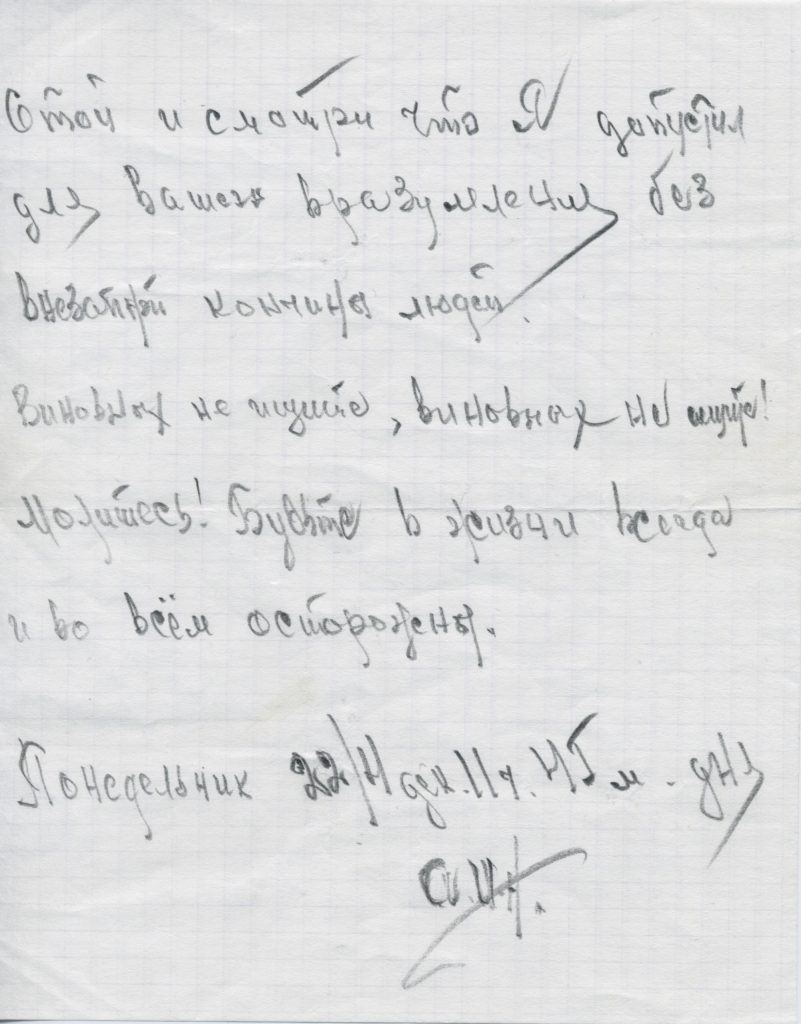 Стой и смотри что Я допустил
для вашего вразумления без
внезапной кончины людей.
Виновных не ищите, виновных не ищите!
Молитесь! Будьте в жизни всегда
и во всём осторожны.
Понедельник 22/ дек. 11 ч. 45 м. дня